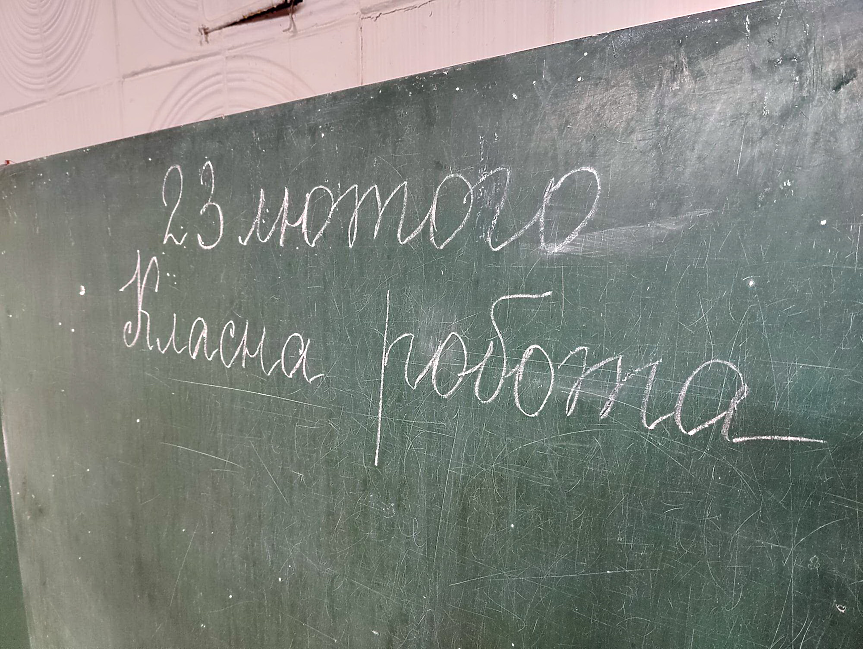 23 лютого
Класна робота